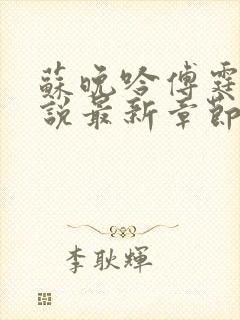 蘇晚吟傅霆
說最新章節
李耿輝